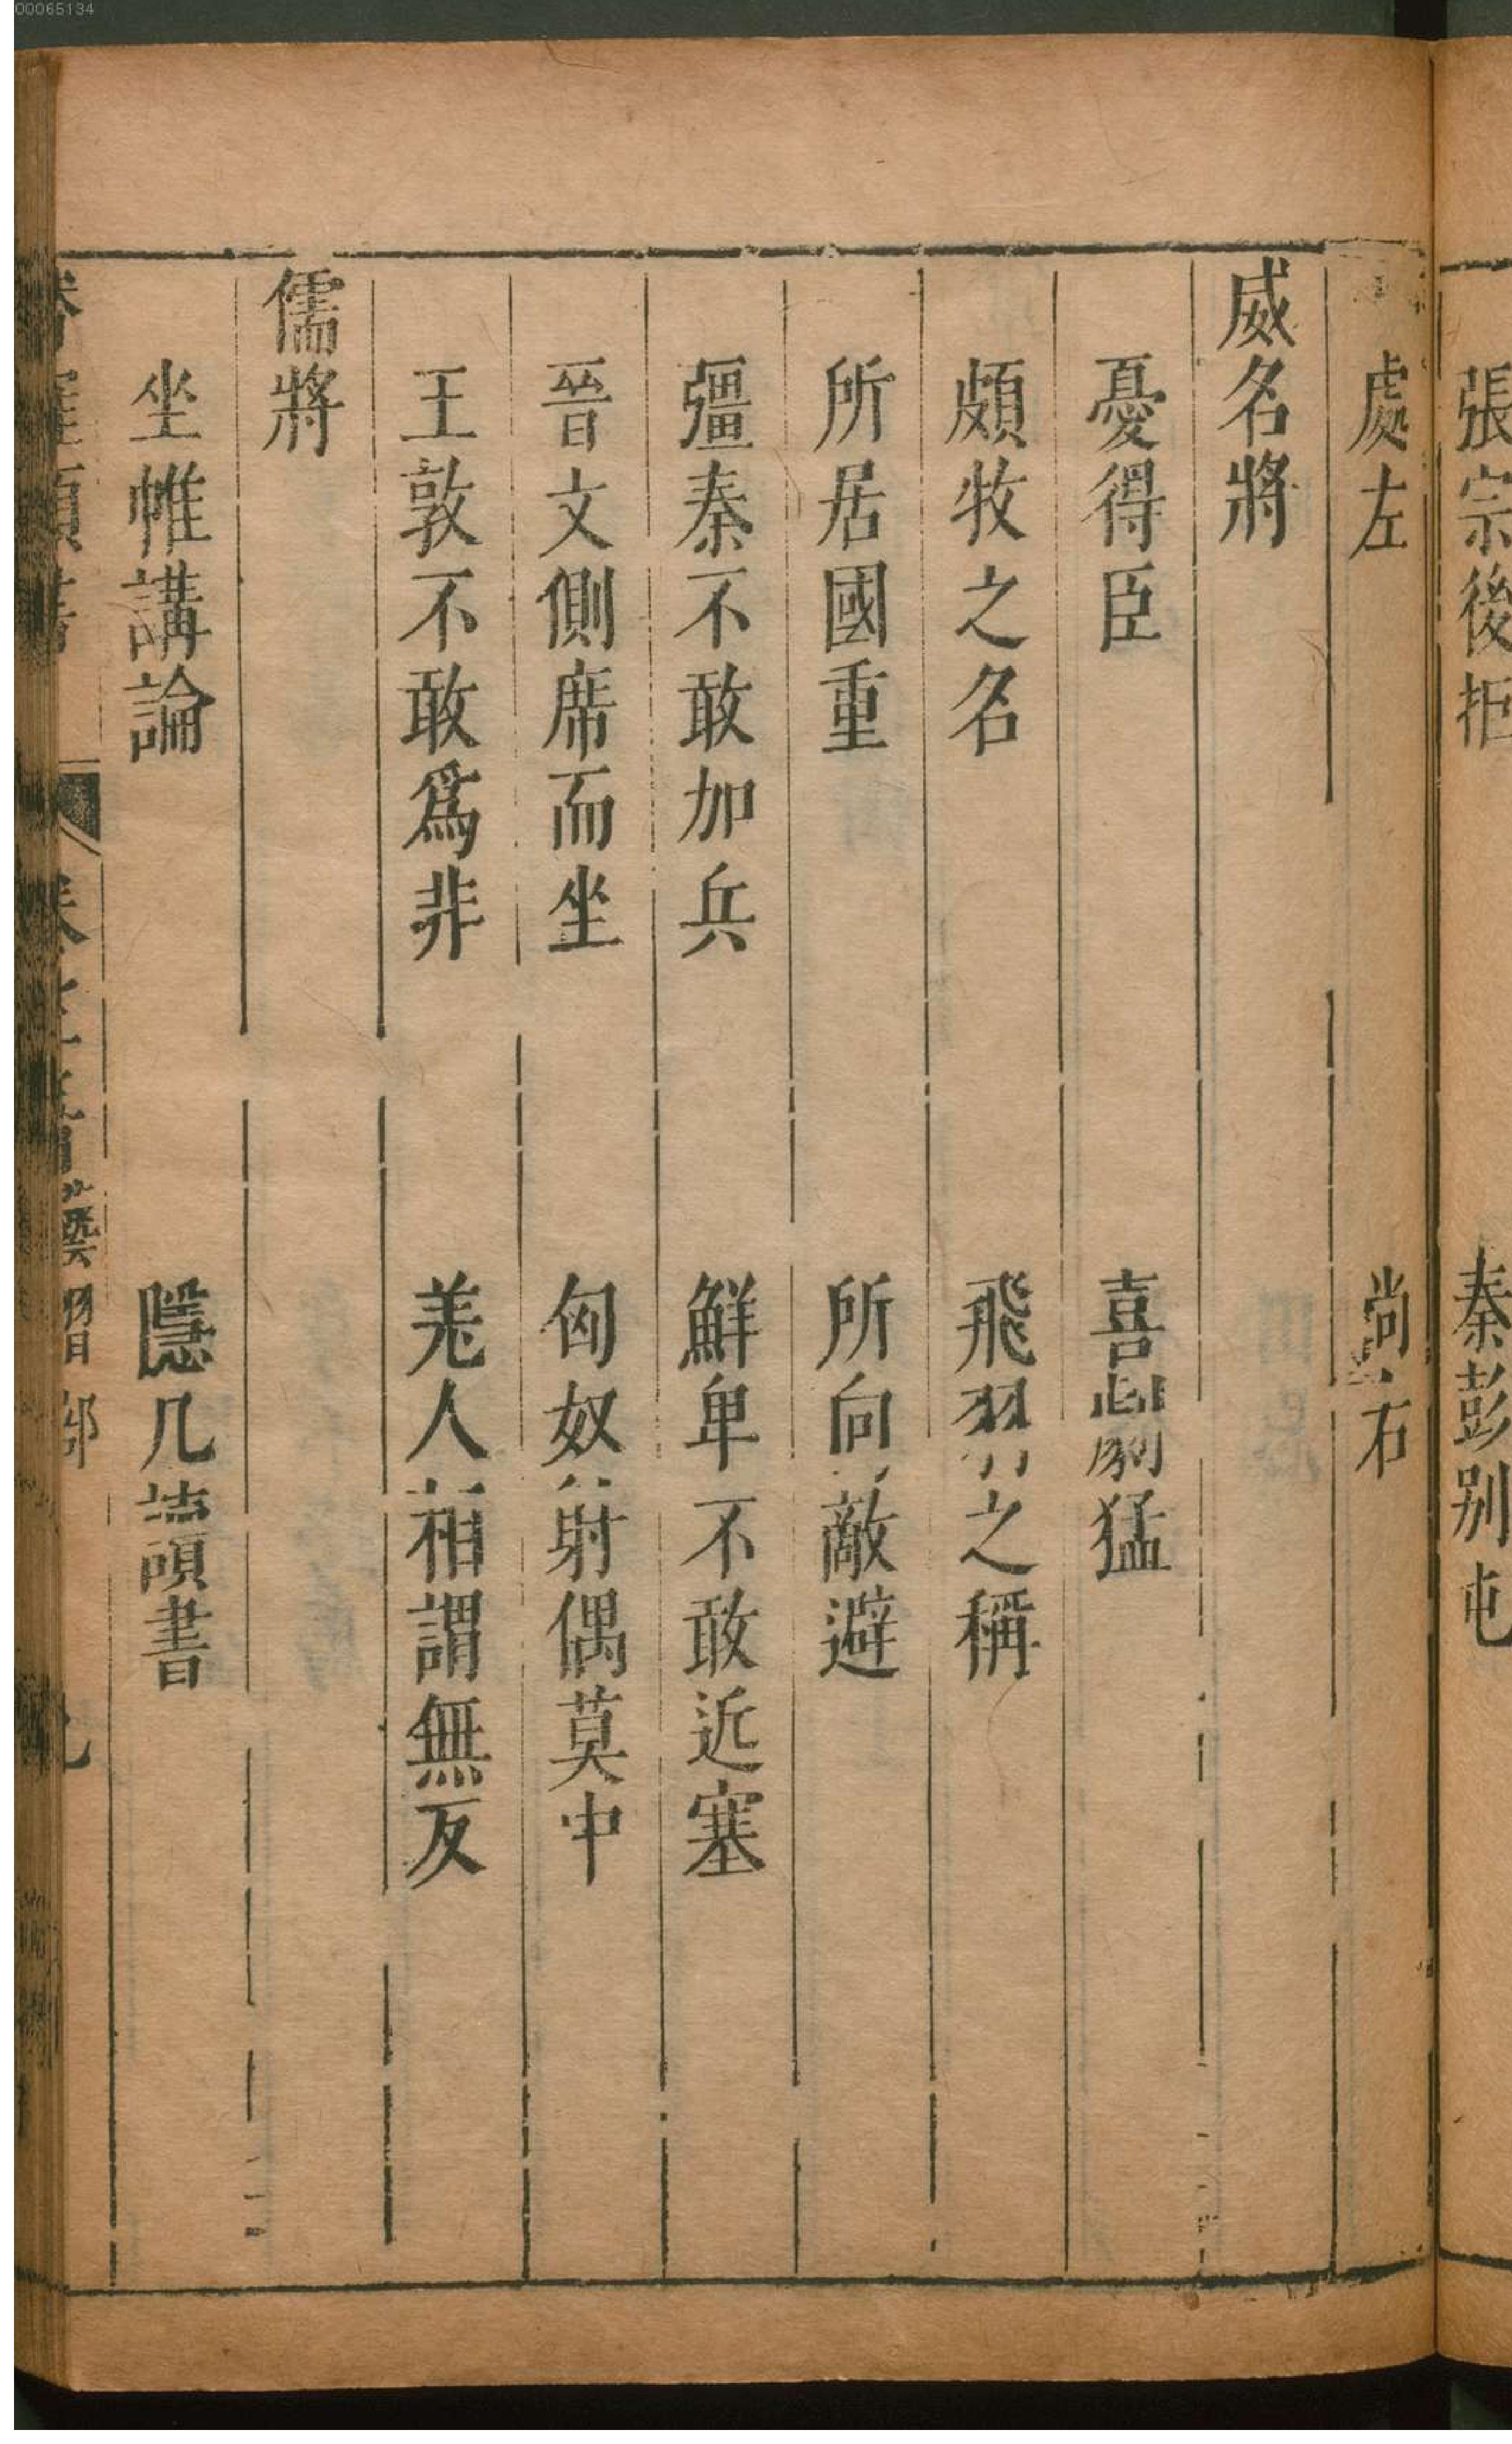 00065134
張宗後拒　秦彭别屯
處左　尚右
威名將
憂得臣　喜劇猛
頗牧之名　飛羽之稱
所居國重　所向敵避
彊秦不敢加兵　鮮卑不敢近塞
晉文側席而坐　匈奴射偶莫中
王敦不敢爲非　羌人相謂無反
儒將
坐帷講論　隱几讀書